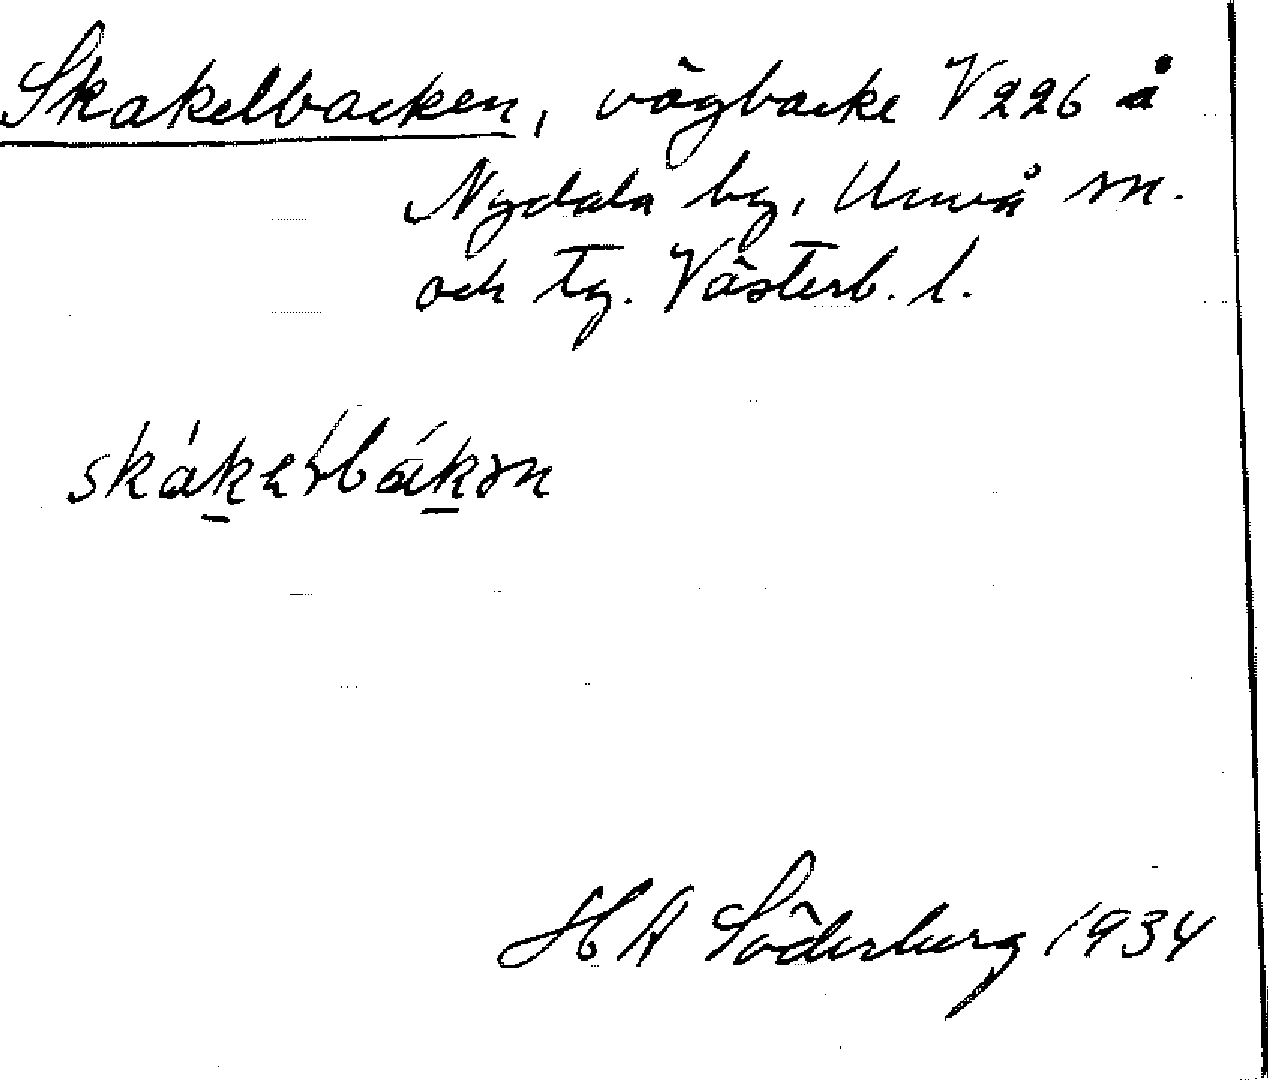 Skakelbacken, vägbacke V 226 å
Nydala by, Umeå sn.
och tg. Västerb. l.
H A Söderberg 1934